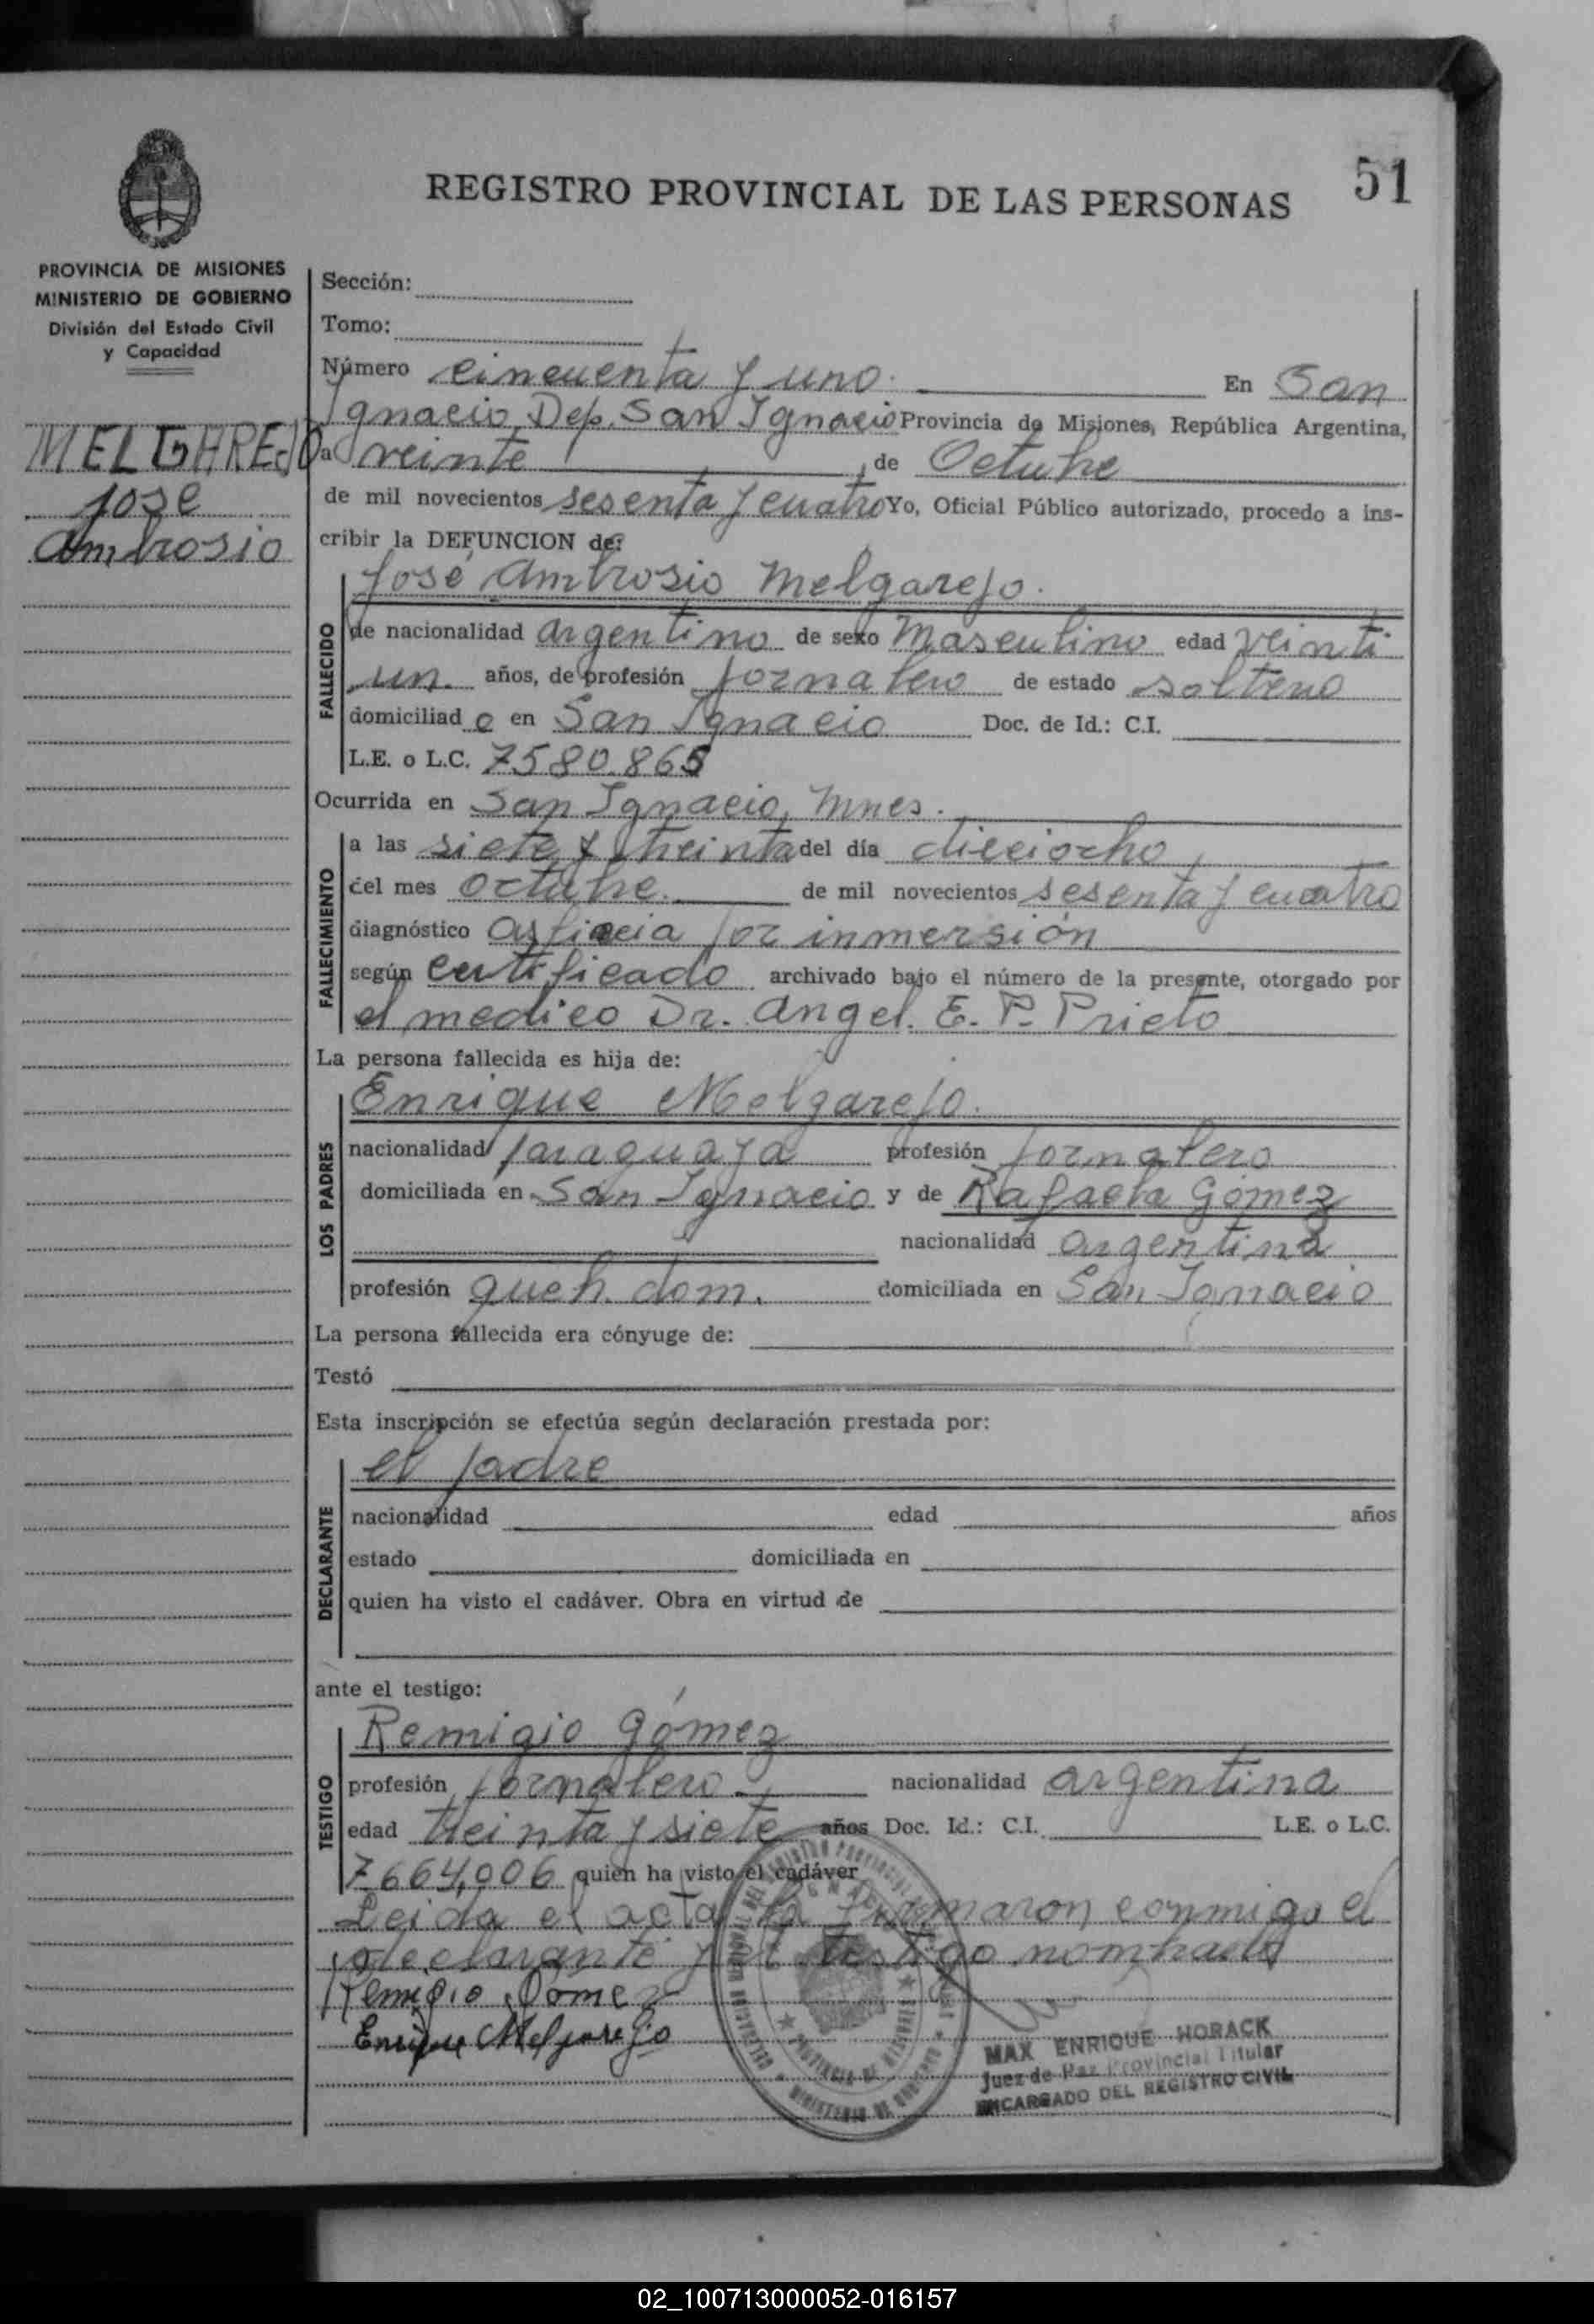 51
REGISTRO PROVINCIAL DE LAS PERSONAS
PROVINCIA DE MISIONES
MINISTERIO DE GOBIERNO
División del Estado Civil
y Capacidad
MELGAREJO
José
Ambrosio
Sección:
Tomo:
Número cincuenta y uno. En San
Ignacio, Dep. San Ignacio Provincia de Misiones, República Argentina,
a veinte de Octubre
de mil novecientos sesenta y cuatro Yo, Oficial Público autorizado, procedo a ins-
cribir la DEFUNCION de:
José Ambrosio Melgarejo.
FALLECIDO
de nacionalidad argentino de sexo Masculino edad veinti
un. años, de profesión jornalero de estado soltero
domiciliad o en San Ignacio Doc. de Id.: C.I.
L.E. o L.C. 7580.865
Ocurrida en San Ignacio, Mnes.
FALLECIMIENTO
a las siete y treinta del día dieciocho
del mes octubre. de mil novecientos sesenta y cuatro
diagnóstico por inmersión
según certificado archivado bajo el número de la presente, otorgado por
el medico Dr. Angel. E. P. Prieto
La persona fallecida es hija de:
LOS PADRES
Enrique Melgarejo.
nacionalidad paraguaya profesión jornalero
domiciliada en San Ignacio y de Rafaela Gómez
nacionalidad argentina
profesión queh. dom. domiciliada en San Ignacio
La persona fallecida era cónyuge de:
Testó
Esta inscripción se efectúa según declaración prestada por:
DECLARANTE
el padre
nacionalidad edad años
estado domiciliada en
quien ha visto el cadáver. Obra en virtud de
ante el testigo:
TESTIGO
Remigio Gómez
profesión jornalero nacionalidad argentina
edad treinta y siete años Doc. Id.: C.I. L.E. o L.C.
7664,006 quien ha visto el cadáver
Leida el acta la firmaron conmigo el
declarante y el testigo nombrado
Remigio Gomez
Enrique Melgarejo
MAX ENRIQUE HORACK
Juez de Paz Provincial Titular
ENCARGADO DEL REGISTRO CIVIL
02_100713000052-016157